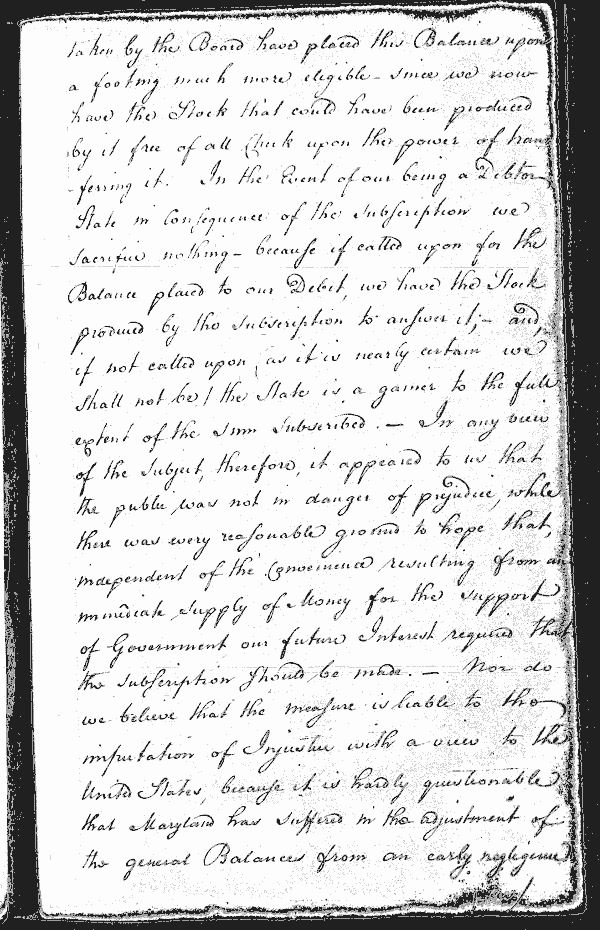 taken by the Board have placed this Balance upon
a footing much more eligible - since we now
have the Stock that could have been produced
by it free of all Check upon the power of trans
-ferring it. In the Event of our being a Debtor
State in Consequence of the subscription we
sacrifice nothing - because if called upon for the
Balance placed to our Debit, we have the Stock
produced by the subscription to answer it; - and,
if not called upon, as it is nearly certain we
shall not be, the State is a gainer to the full
extent of the sum subscribed. - In any view
of the subject, therefore, it appeared to us that
the public was not in danger of prejudice, while
there was every reasonable ground to hope that,
independent of the Convenience resulting from an
immediate supply of Money for the support
of Government our future Interest required that
the subscription should be made. - Nor do
we believe that the measure is liable to the
imputation of Injustice with a view to the
United States, because it is hardly questionable
that Maryland has suffered in the adjustment of
the general Balances from an early negligence